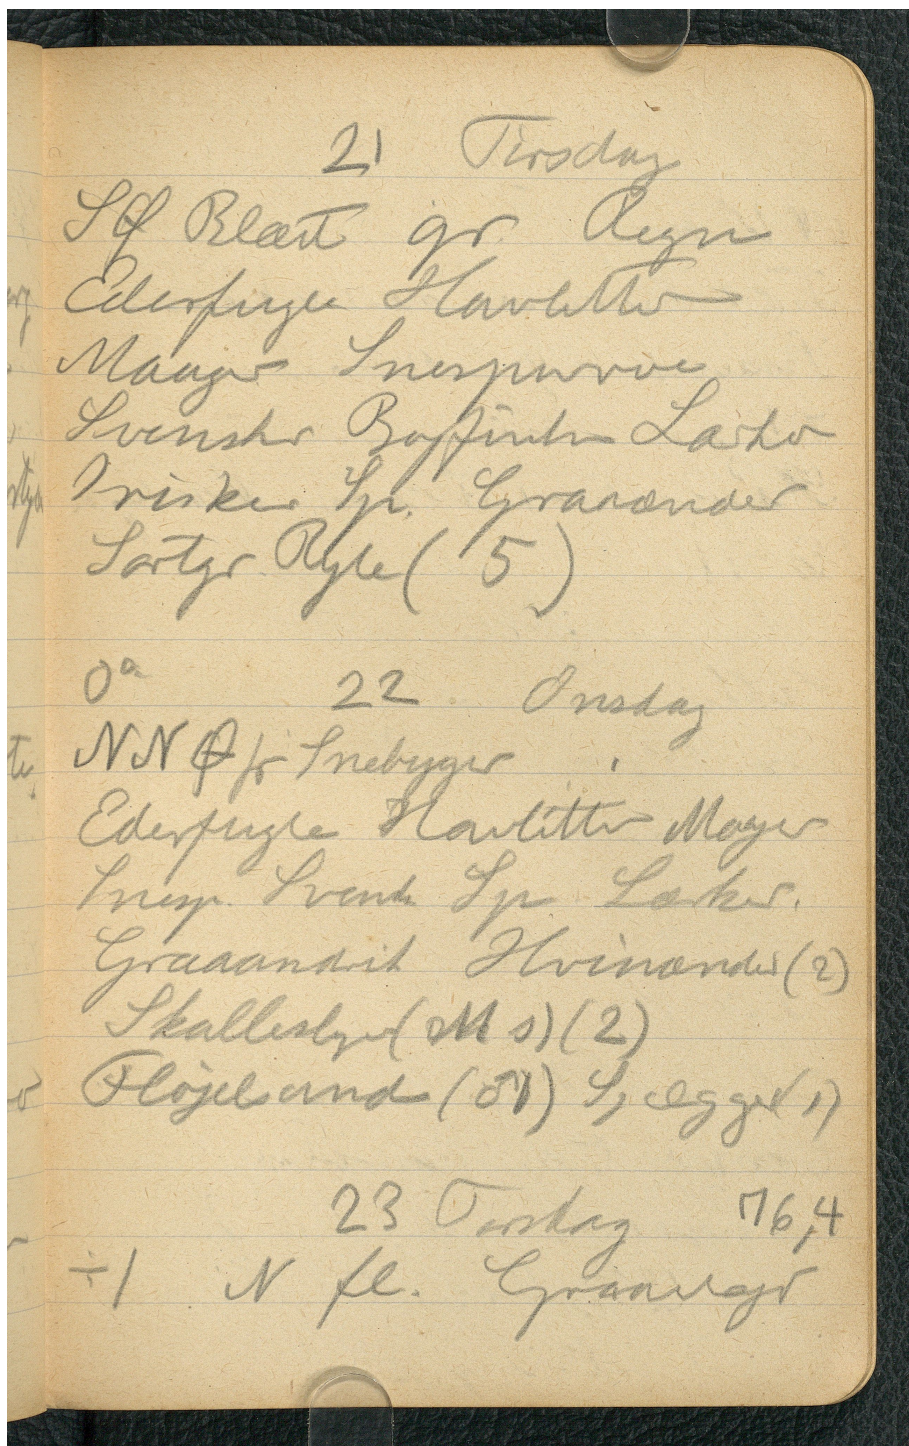 21 Tirsdag
SØ Blæst gr Regn
Ederfugle Havlitter
Maager Snespurve
Svenske Bogfinke Lærker
Irisker Sp. Graaænder
Sortgr. Ryle (5)
0° 22 Onsdag
NNØ fr Snebyger
Ederfugle Havlitter Mager
Snesp. Svensk Sp Lærker.
Graaandrik Hvinænder (2)
Skallesluger (M s) (2)
Fløjelsand (♂1)
23 Torsdag 76,4
÷1 N fl. Graavejr